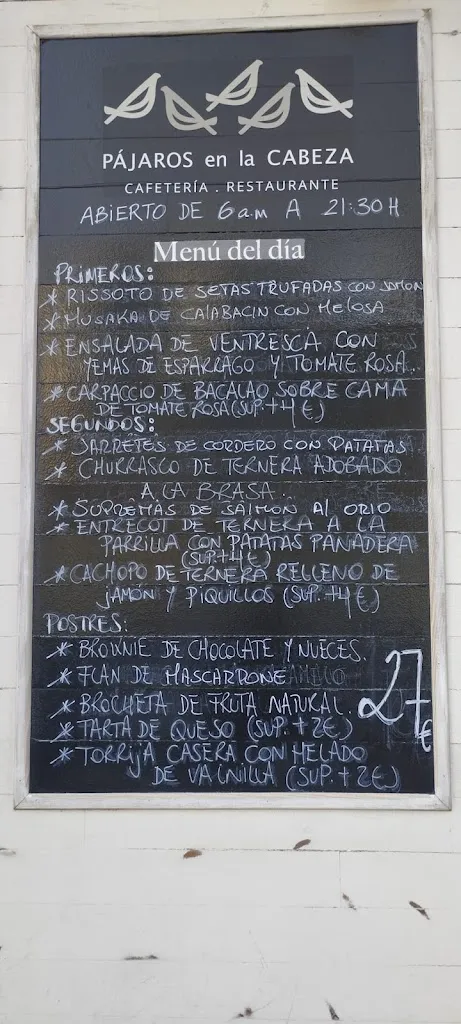 PÁJAROS en la CABEZA
CAFETERÍA . RESTAURANTE
ABIERTO DE 6 a.m A 21:30 H
Menú del día
PRIMEROS:
* RISSOTO DE SETAS TRUFADAS CON JAMON
* MUSAKA DE CALABACIN CON MELOSA
* ENSALADA DE VENTRESCA CON
YEMAS DE ESPARRAGO Y TOMATE ROSA..
* CARPACCIO DE BACALAO SOBRE CAMA
DE TOMATE ROSA (SUP.+4 €)
SEGUNDOS:
* JARRETES DE CORDERO CON PATATAS
* CHURRASCO DE TERNERA ADOBADO
A LA BRASA..
* SUPREMAS DE SALMON AL ORIO
* ENTRECOT DE TERNERA A LA
PARRILLA CON PATATAS PANADERA
(SUP.+4 €)
* CACHOPO DE TERNERA RELLENO DE
JAMÓN Y PIQUILLOS (SUP. +4 €)
POSTRES:
* BROWNIE DE CHOCOLATE Y NUECES.
* FLAN DE MASCARPONE
* BROCHETA DE FRUTA NATURAL.
27 €
* TARTA DE QUESO (SUP. + 2€)
* TORRIJA CASERA CON HELADO
DE VAINILLA (SUP. + 2€)